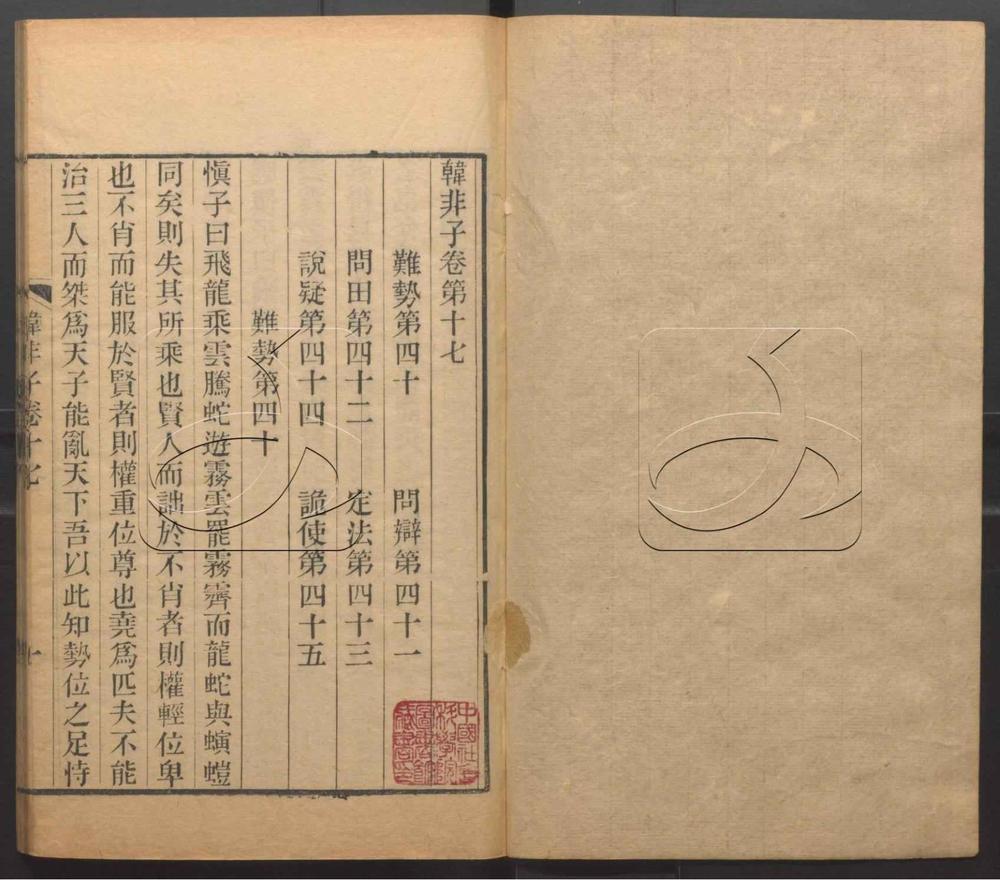 韓非子卷第十七
難勢第四十　問辯第四十一
問田第四十二　定法第四十三
說疑第四十四　詭使第四十五
難勢第四十
愼子曰飛龍乘雲騰蛇遊霧雲罷霧霽而龍蛇與螾螘
同矣則失其所乘也賢人而詘於不肖者則權輕位卑
也不肖而能服於賢者則權重位尊也堯爲匹夫不能
治三人而桀爲天子能亂天下吾以此知勢位之足恃
韓非子卷十七
一